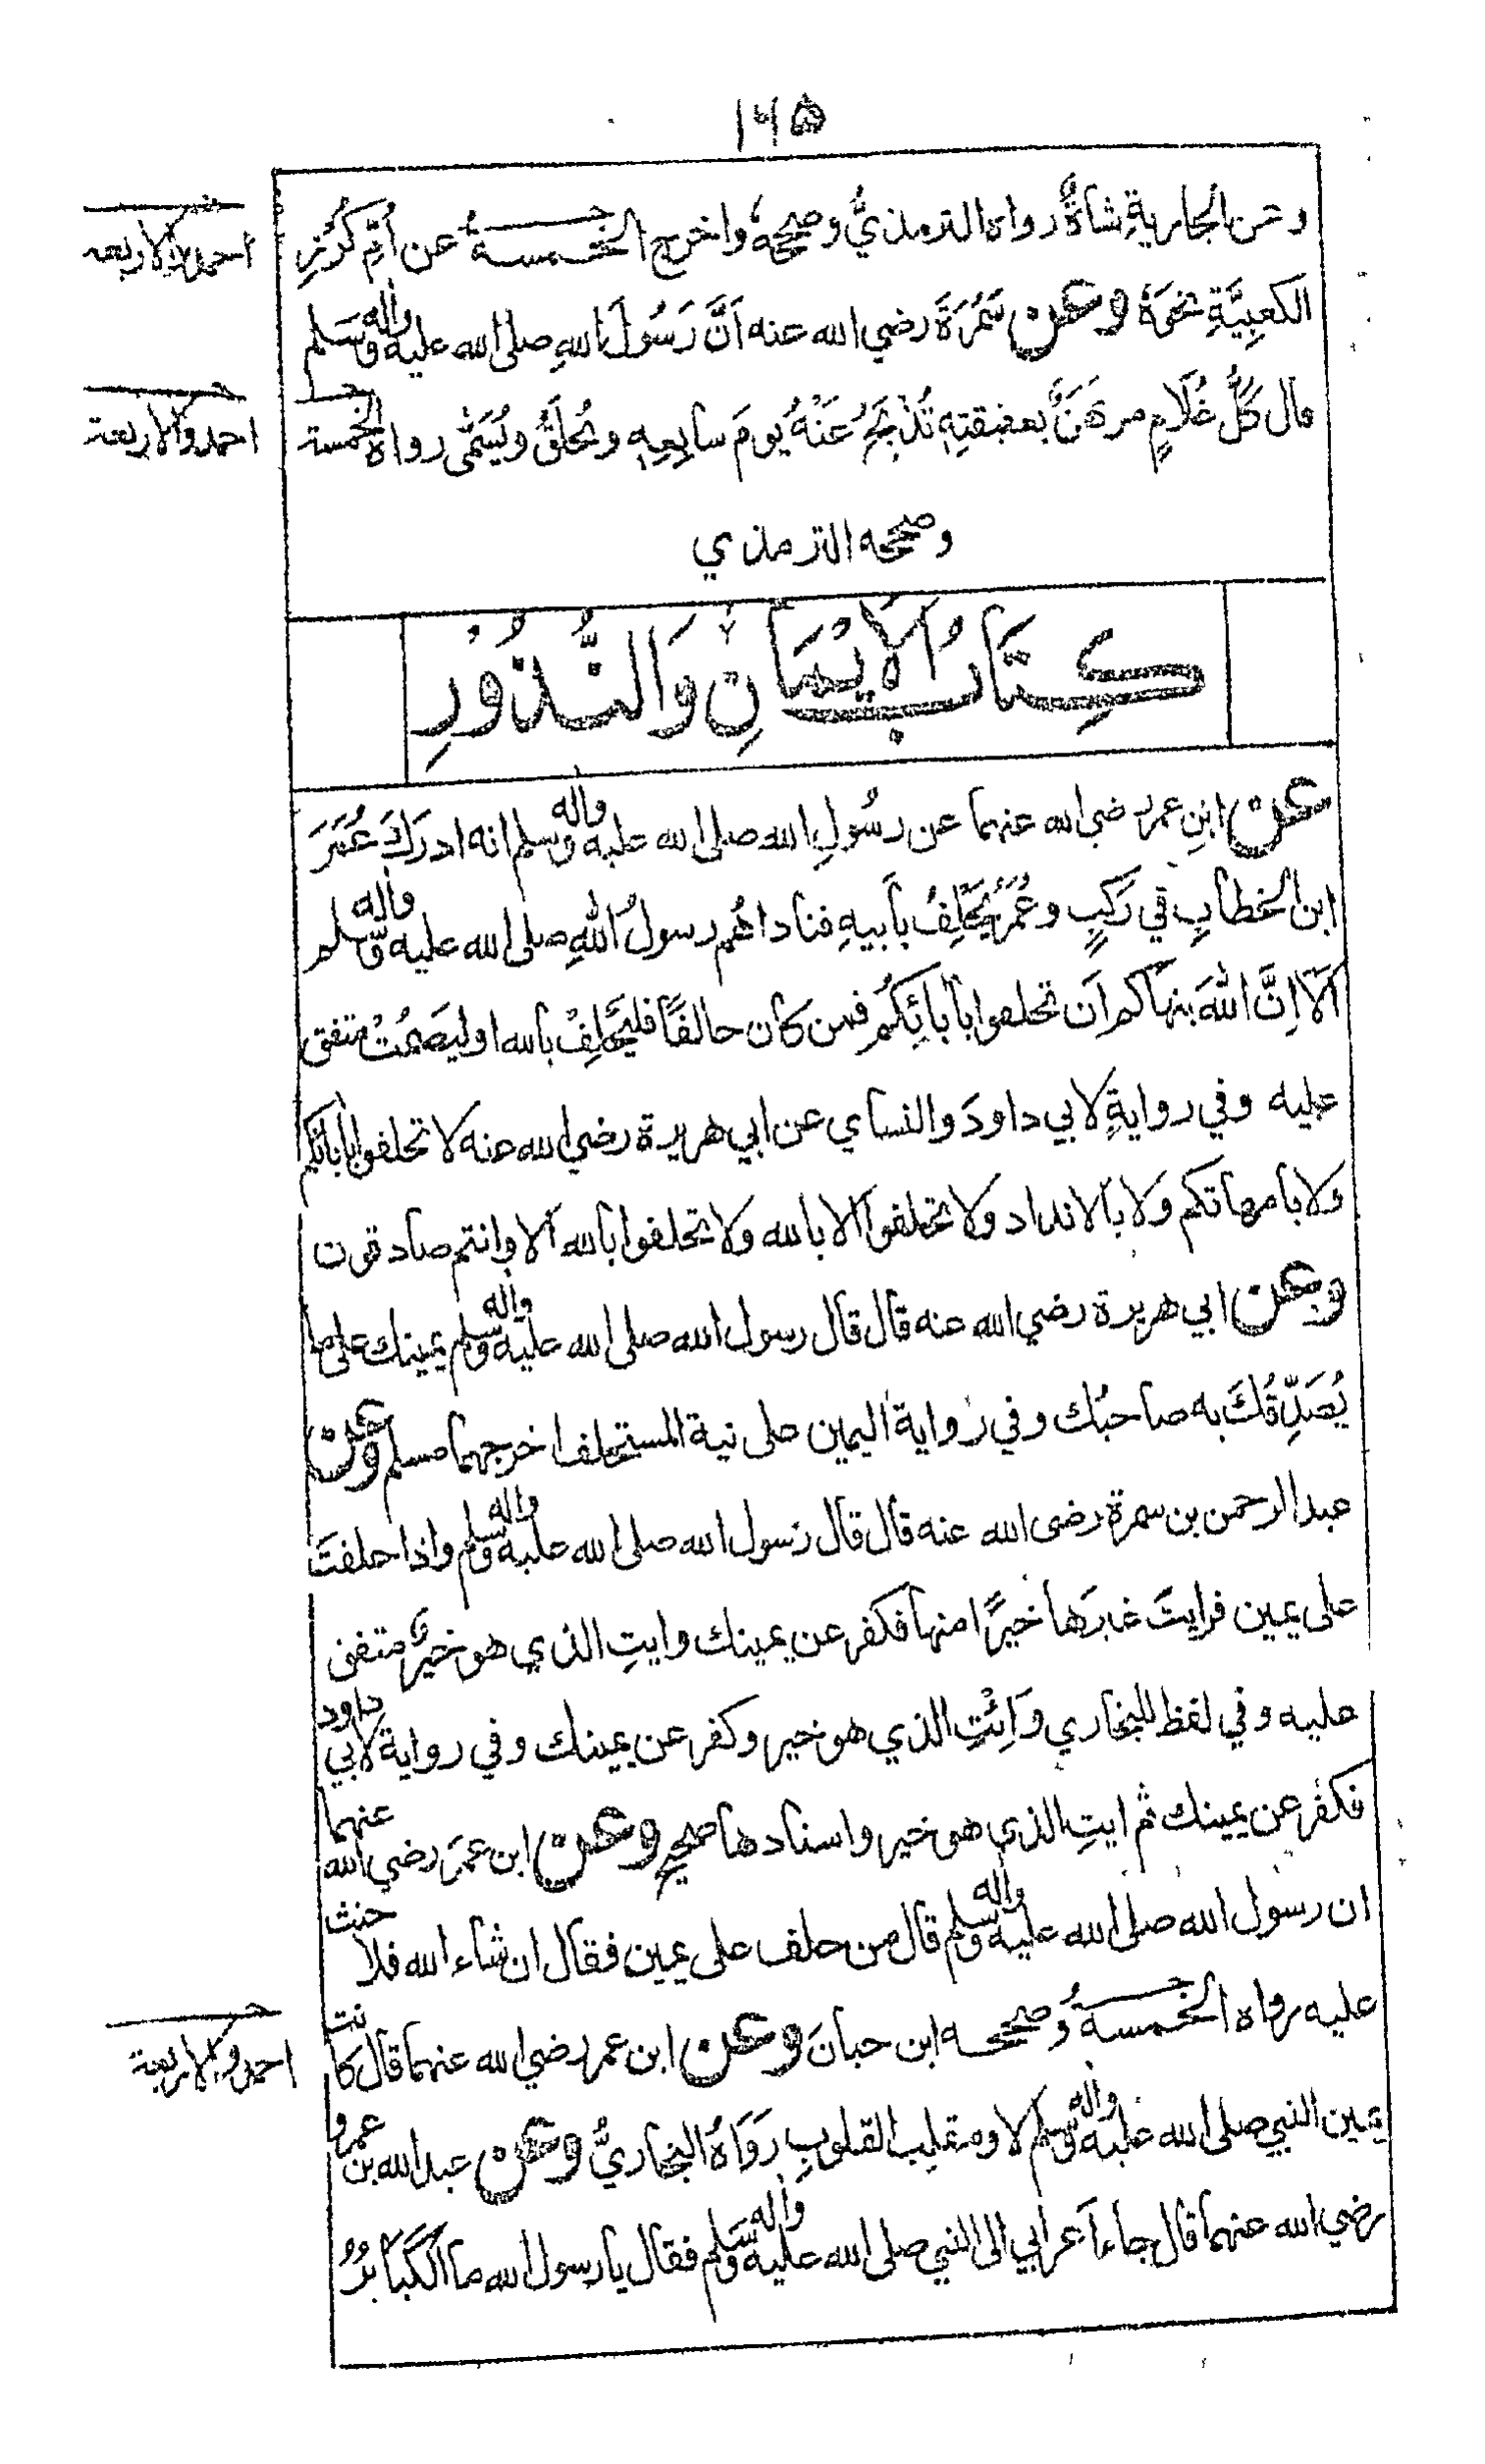 ١٦٥
وعن الجاريةِ شاةٌ رواه الترمذيُّ وصححهُ واخرج الخمسةُ عن اُمِّ كُرْزٍ
احمد والاربعه
الكعبِيَّةِ نحوَهُ وعن سَمُرَةَ رضي الله عنه اَنَّ رَسُولَ اللهِ صلى الله عليه واٰله وَسَلم
قال كلُّ غُلَامٍ مرتهَنٌ بعقيقتِهٖ تُذبَحُ عَنْهُ يومَ سابِعِهٖ ويُحلَقُ ويُسَمّٰى رواهُ الخمسة
احمد والاربعة
وصححه الترمذي
كِتَابُ الْاَيْمَانِ وَالنُّذُوْرِ
عن ابنِ عمر رضي الله عنهما عن رسُولِ الله صلى الله عليه واٰله وسلم انه ادرَكَ عُمَرَ
ابن الخطابِ في رَكبٍ وعُمَرُ يَحْلِفُ بأبيهِ فناداهُم رسولُ اللهِ صلى الله عليه واٰله وسلم
اَلَا اِنَّ اللهَ ينهاكم اَن تحلفوا بآبائِكُم فمن كان حالفًا فليَحْلِفْ بالله او ليَصمُتْ متفق
عليه وفي روايةٍ لابي داودَ والنساي عن ابي هريرة رضي الله عنه لا تحلفوا بآبائكم
ولا بامهاتكم ولا بالانداد ولا تحلفوا الا بالله ولا تحلفوا بالله الا وانتم صادقون
وعن ابي هريرة رضي الله عنه قال قال رسول الله صلى الله عليه واٰله وسلم يمينك على ما
يُصَدِّقُكَ به صاحبُك وفي رواية اليمين على نية المستحلف اخرجهما مسلم وعن
عبد الرحمن بن سمرة رضى الله عنه قال قال رَسول الله صلى الله عليه واٰله وسلم واذا حلفتَ
على يمين فرايتَ غيرَها خيرًا منها فكفر عن يمينك وايتِ الذي هو خيرٌ متفق
عليه وفي لفظ للبخاري وَائْتِ الذي هو خير وكفر عن يمينك وفي رواية لابي داود
فكفر عن يمينك ثم ايتِ الذي هو خير واسنادها صحيح وعن ابن عمَر رضي الله عنهما
ان رسول الله صلى الله عليه واٰله وسلم قال من حلف على يمين فقال ان شاء الله فلا حنث
عليه رواه الخمسةُ وصححه ابن حبانَ وعن ابن عمر رضي الله عنهما قال كانت
احمد والاربعة
يمين النبي صلى الله عليه واٰله وسلم لا ومقلب القلوبِ رَوَاهُ البخاريُّ وعن عبد الله بن عمرو
رضي الله عنهما قال جاء اَعرابي الى النبي صلى الله عليه واٰله وسلم فقال يا رسول الله ما الكَبائرُ